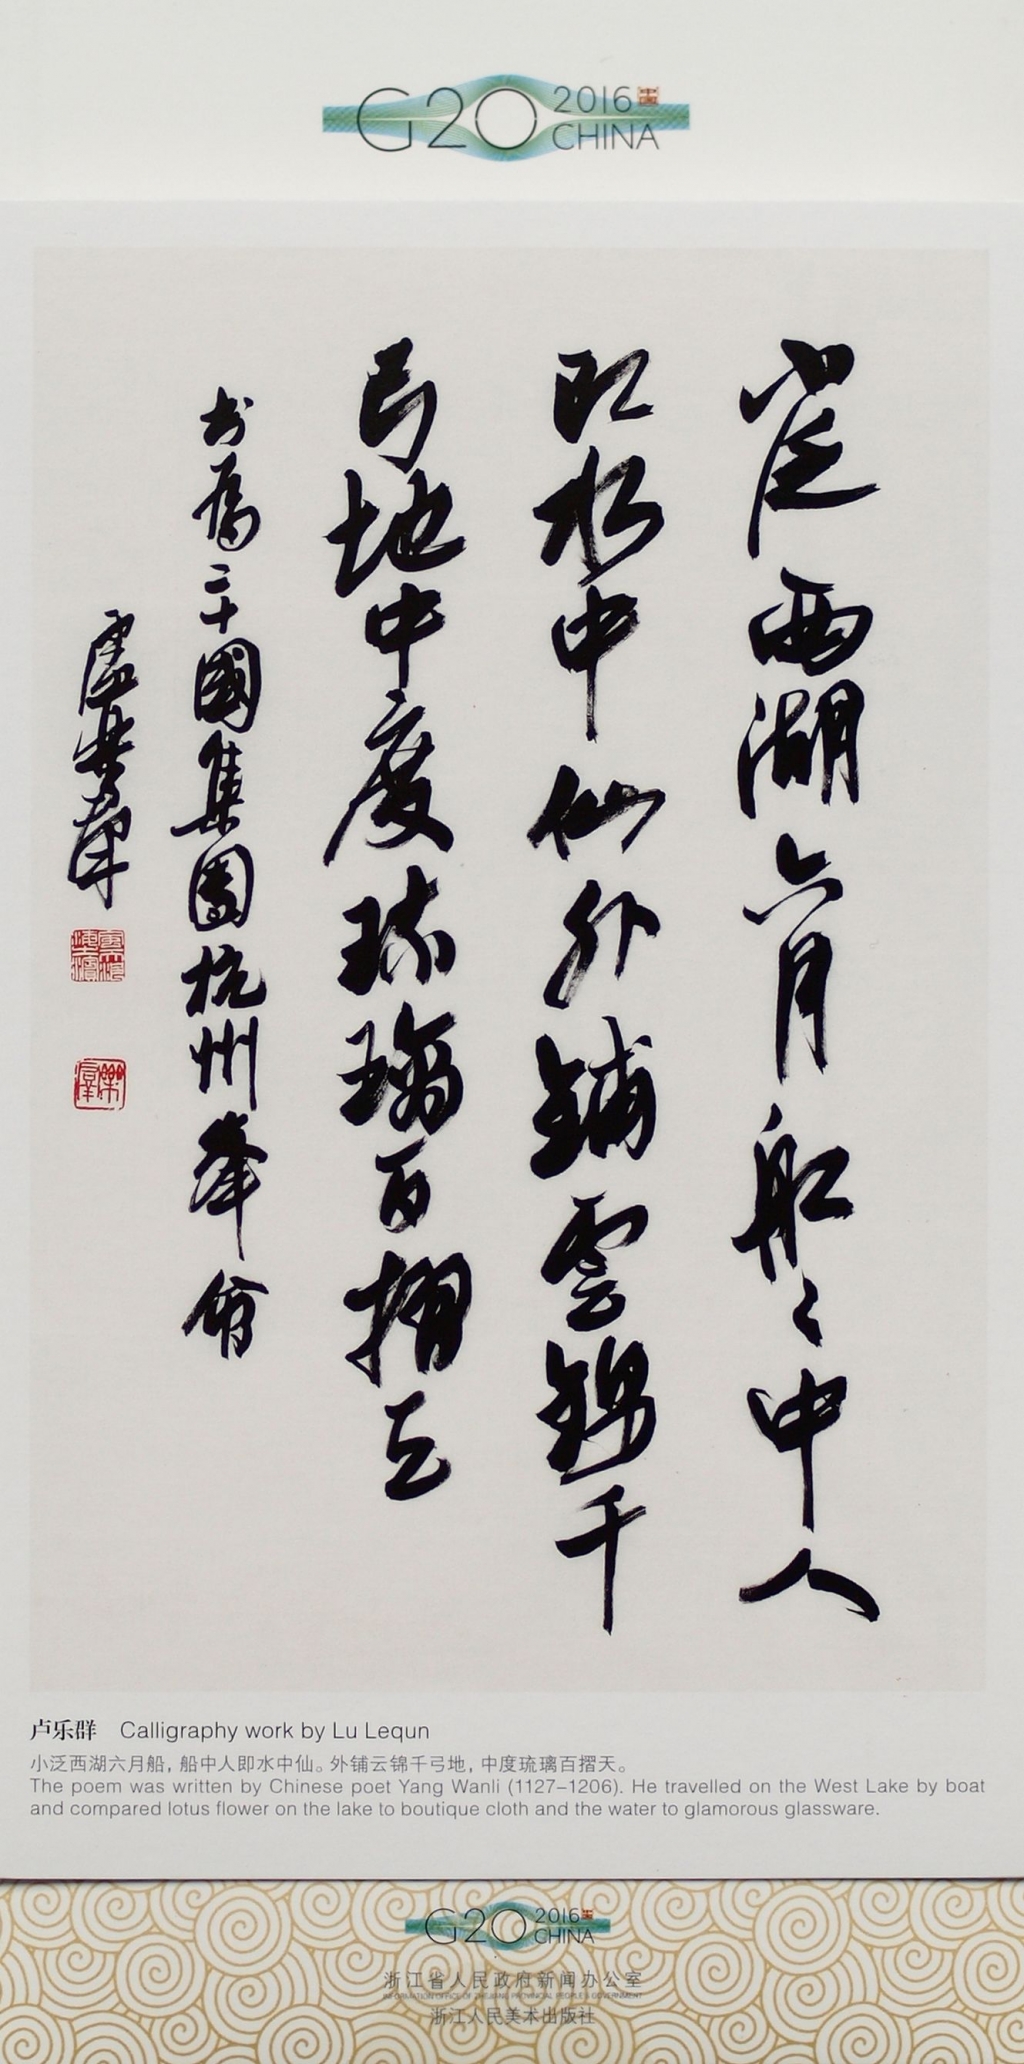 G20 2016 中国
CHINA
小泛西湖六月船〻中人
即水中仙外铺雲锦千
弓地中度琉璃百摺天
书为二十國集团杭州峯會
盧樂群
卢乐群 Calligraphy work by Lu Lequn
小泛西湖六月船，船中人即水中仙。外铺云锦千弓地，中度琉璃百摺天。
The poem was written by Chinese poet Yang Wanli (1127–1206). He travelled on the West Lake by boat
and compared lotus flower on the lake to boutique cloth and the water to glamorous glassware.
G20 2016 中国
CHINA
浙江省人民政府新闻办公室
INFORMATION OFFICE OF ZHEJIANG PROVINCIAL PEOPLE'S GOVERNMENT
浙江人民美术出版社